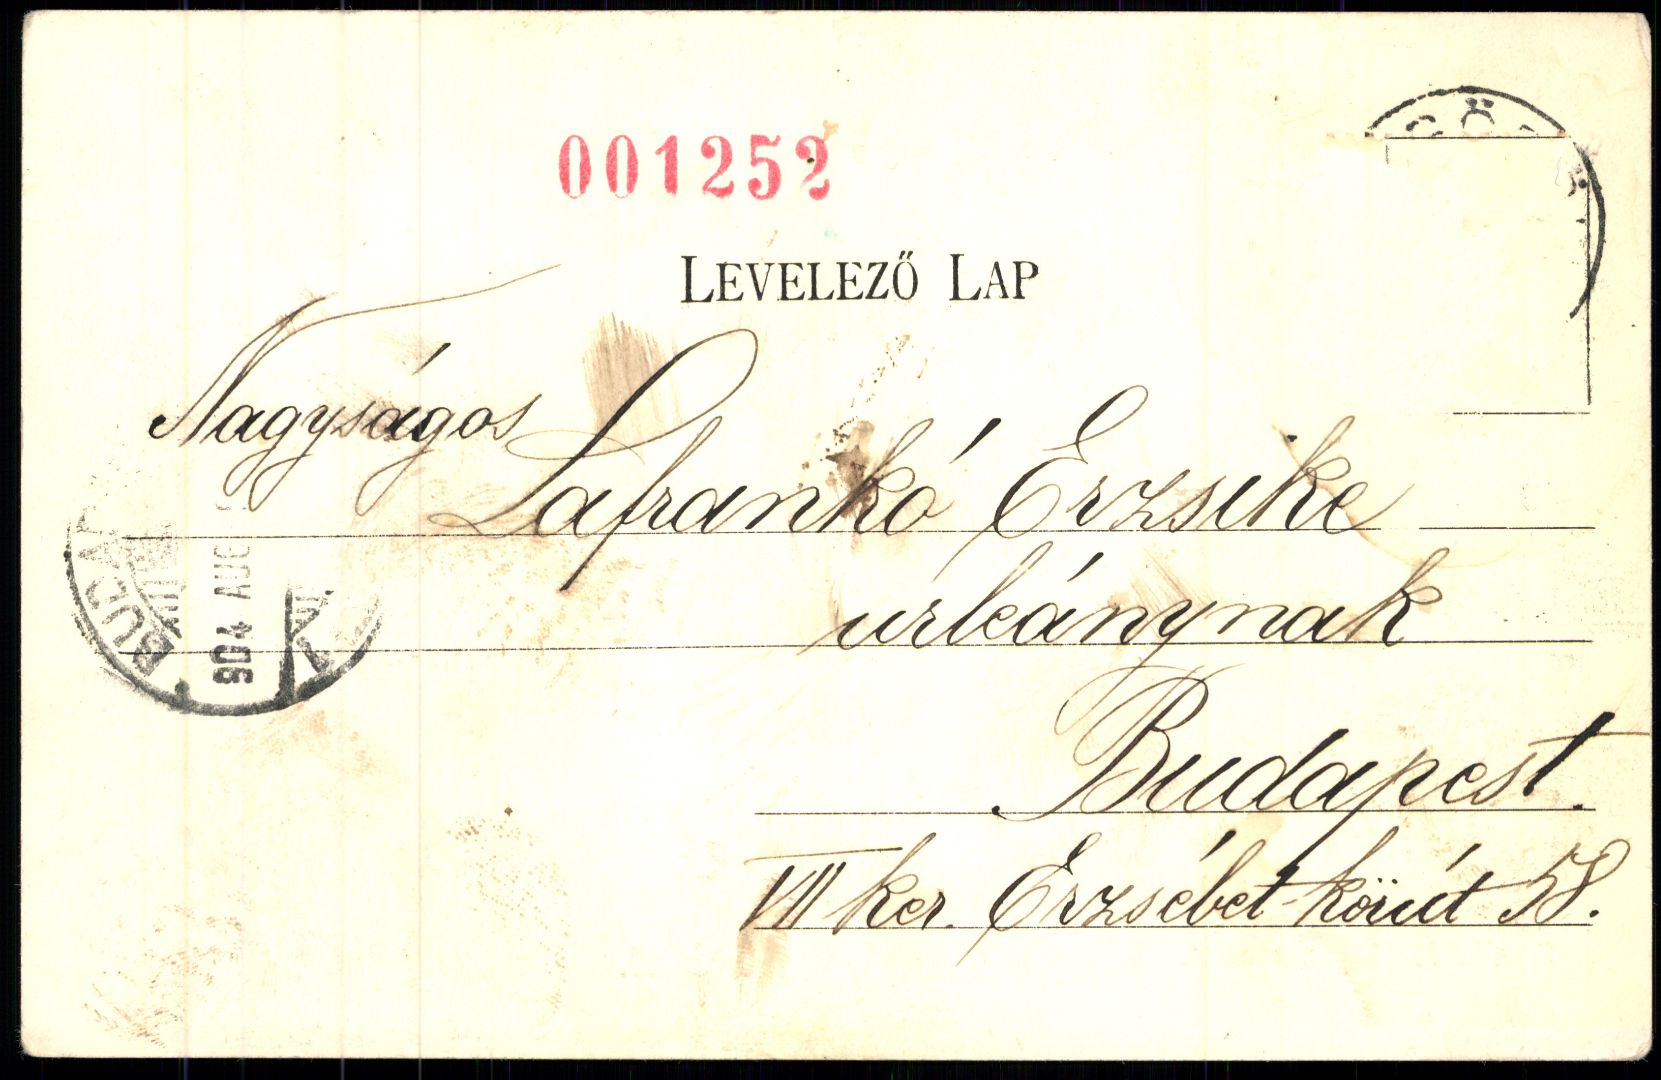 001252
LEVELEZŐ LAP
Nagyságos
Lafrankó Erzsike
úrleánynak
Budapest.
VII ker. Erzsébet-körút 58.
904 AUG